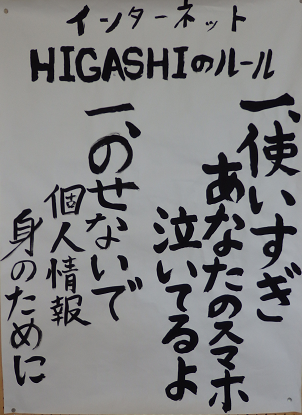 インターネット
HIGASHIのルール
一、使いすぎ
あなたのスマホ
泣いてるよ
一、のせないで
個人情報
身のために